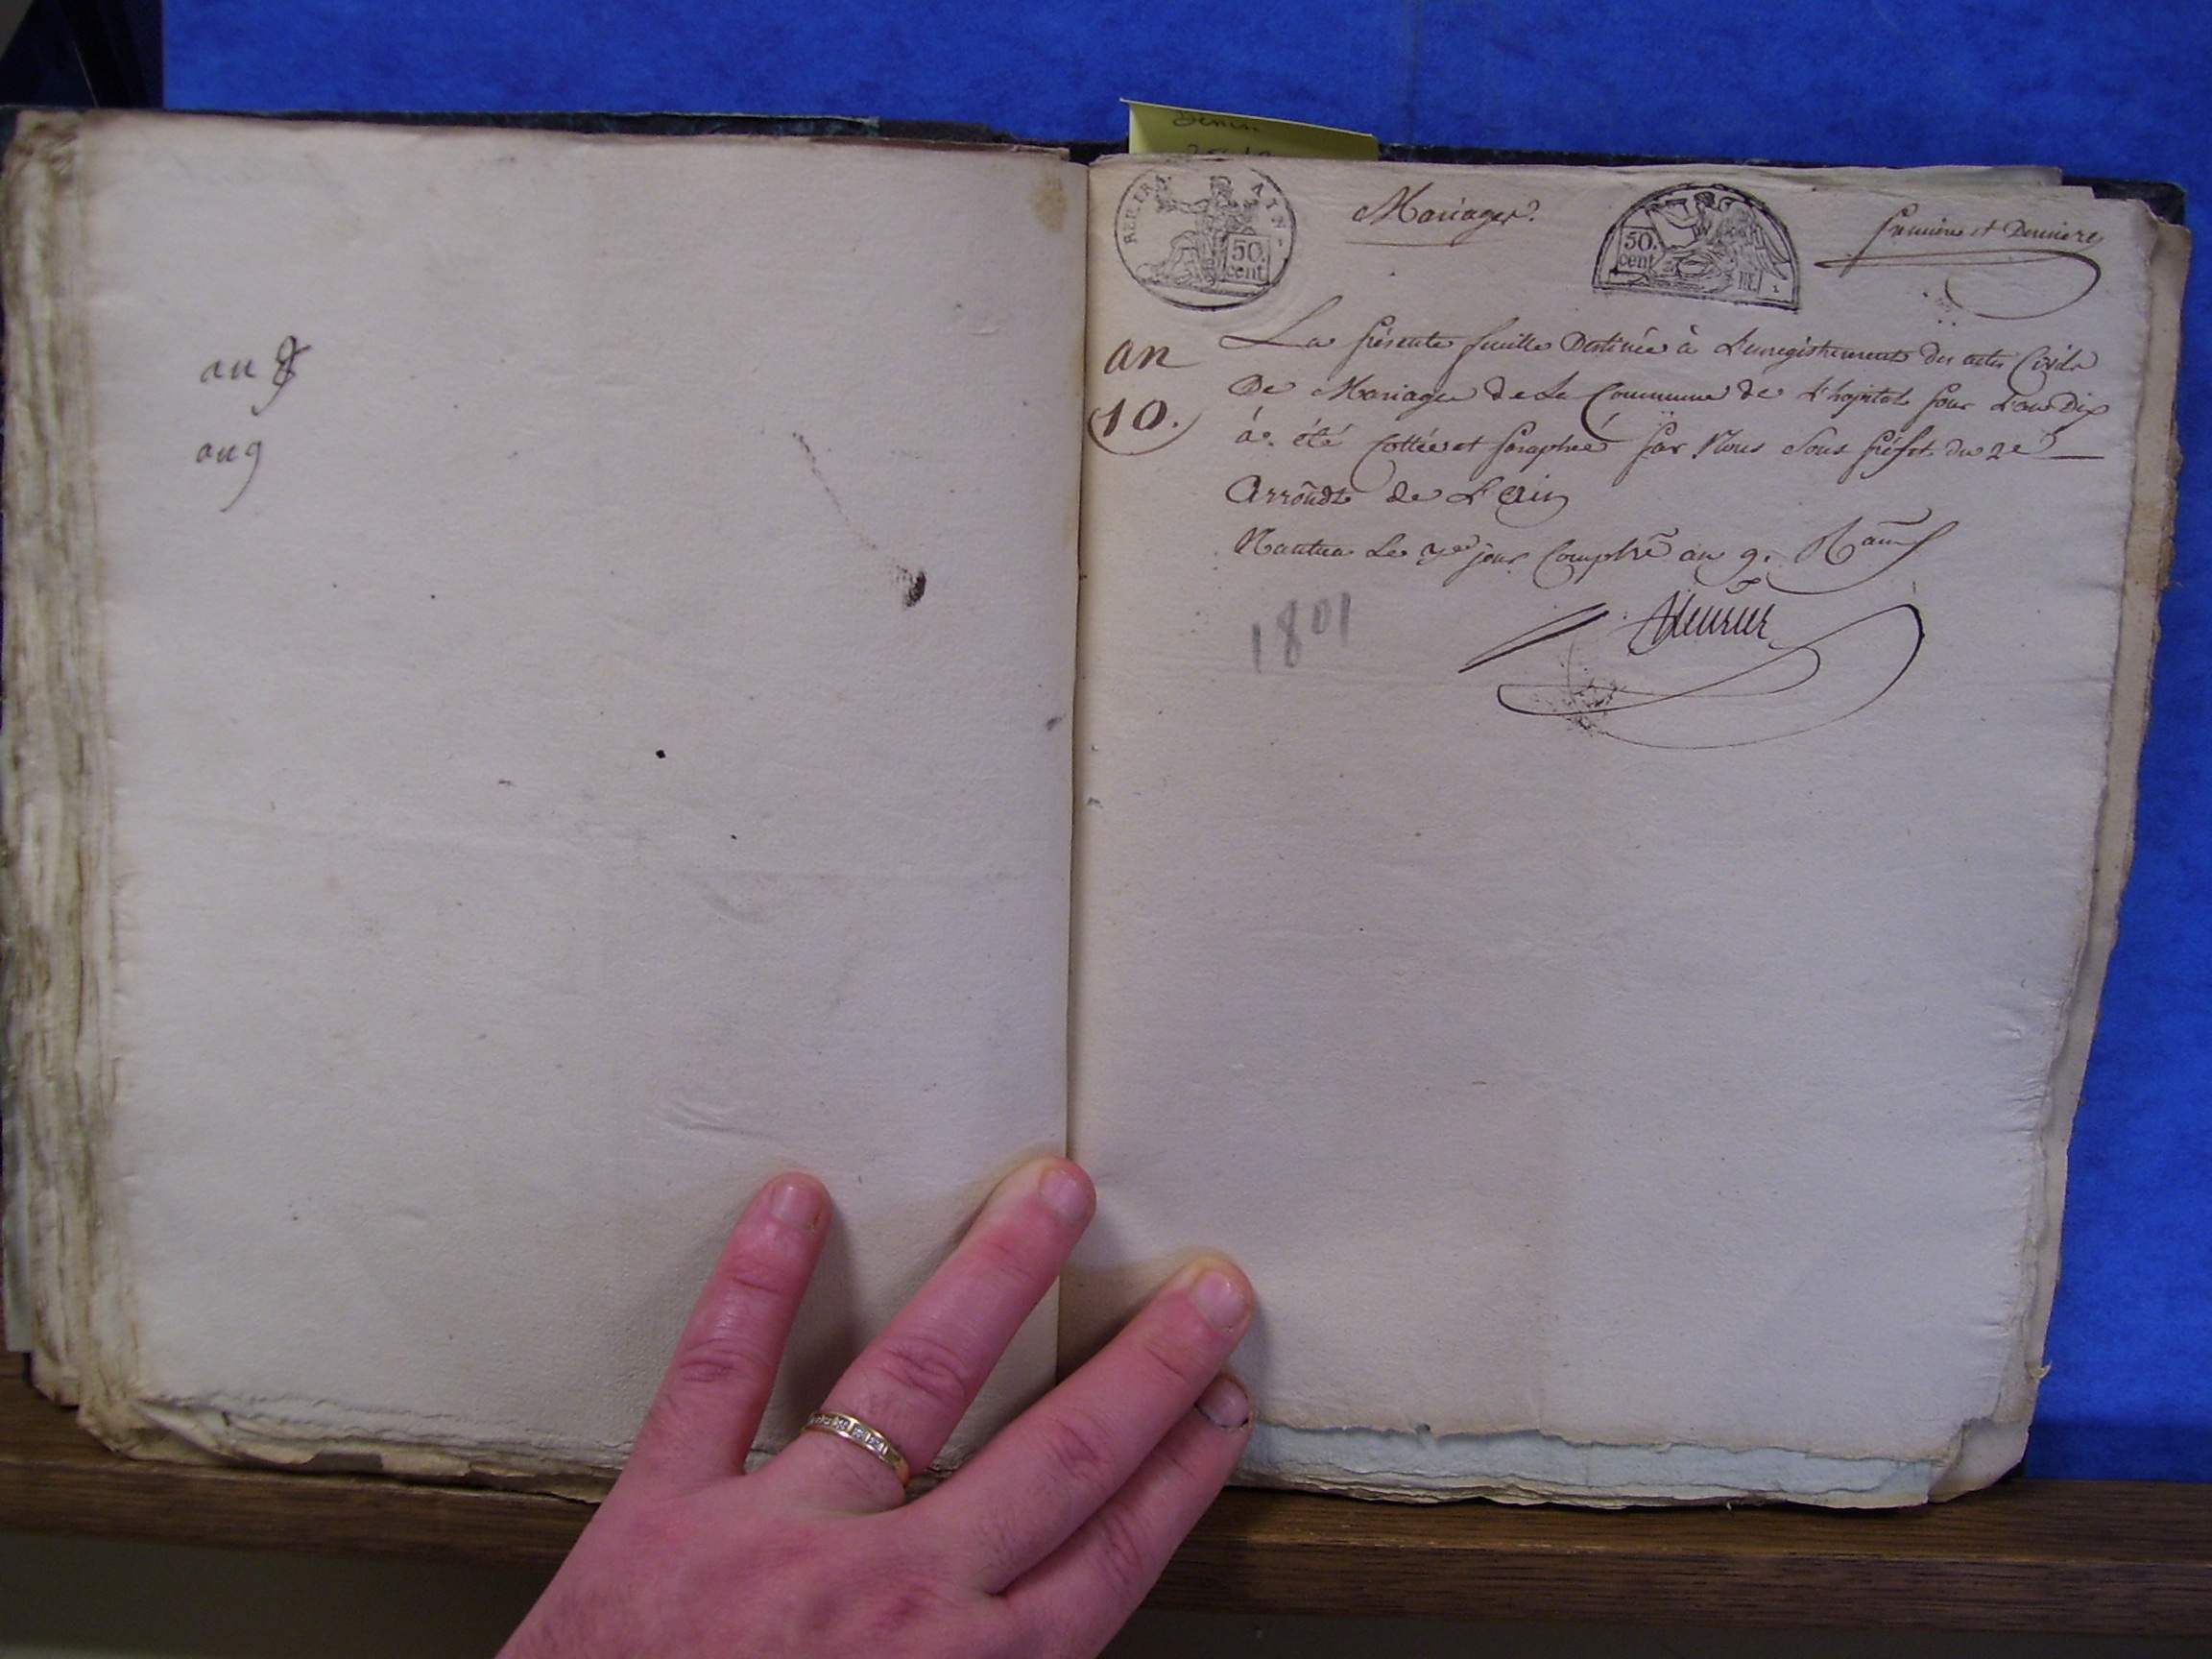 an 8
an 9
Mariages.
Première et Dernière
RÉP. FRA. AIN.
50. cent
50. cent
an
10.
La présente feuille Destinée à L'enregistrement des actes Civils
De Mariages de La Commune de L'hopital pour L'an Dix
á été Cottée et paraphée par Nous Sous préfet du 2e
Arrondt de L'Ain
Nantua Le 3e jour Complre an 9.
1801